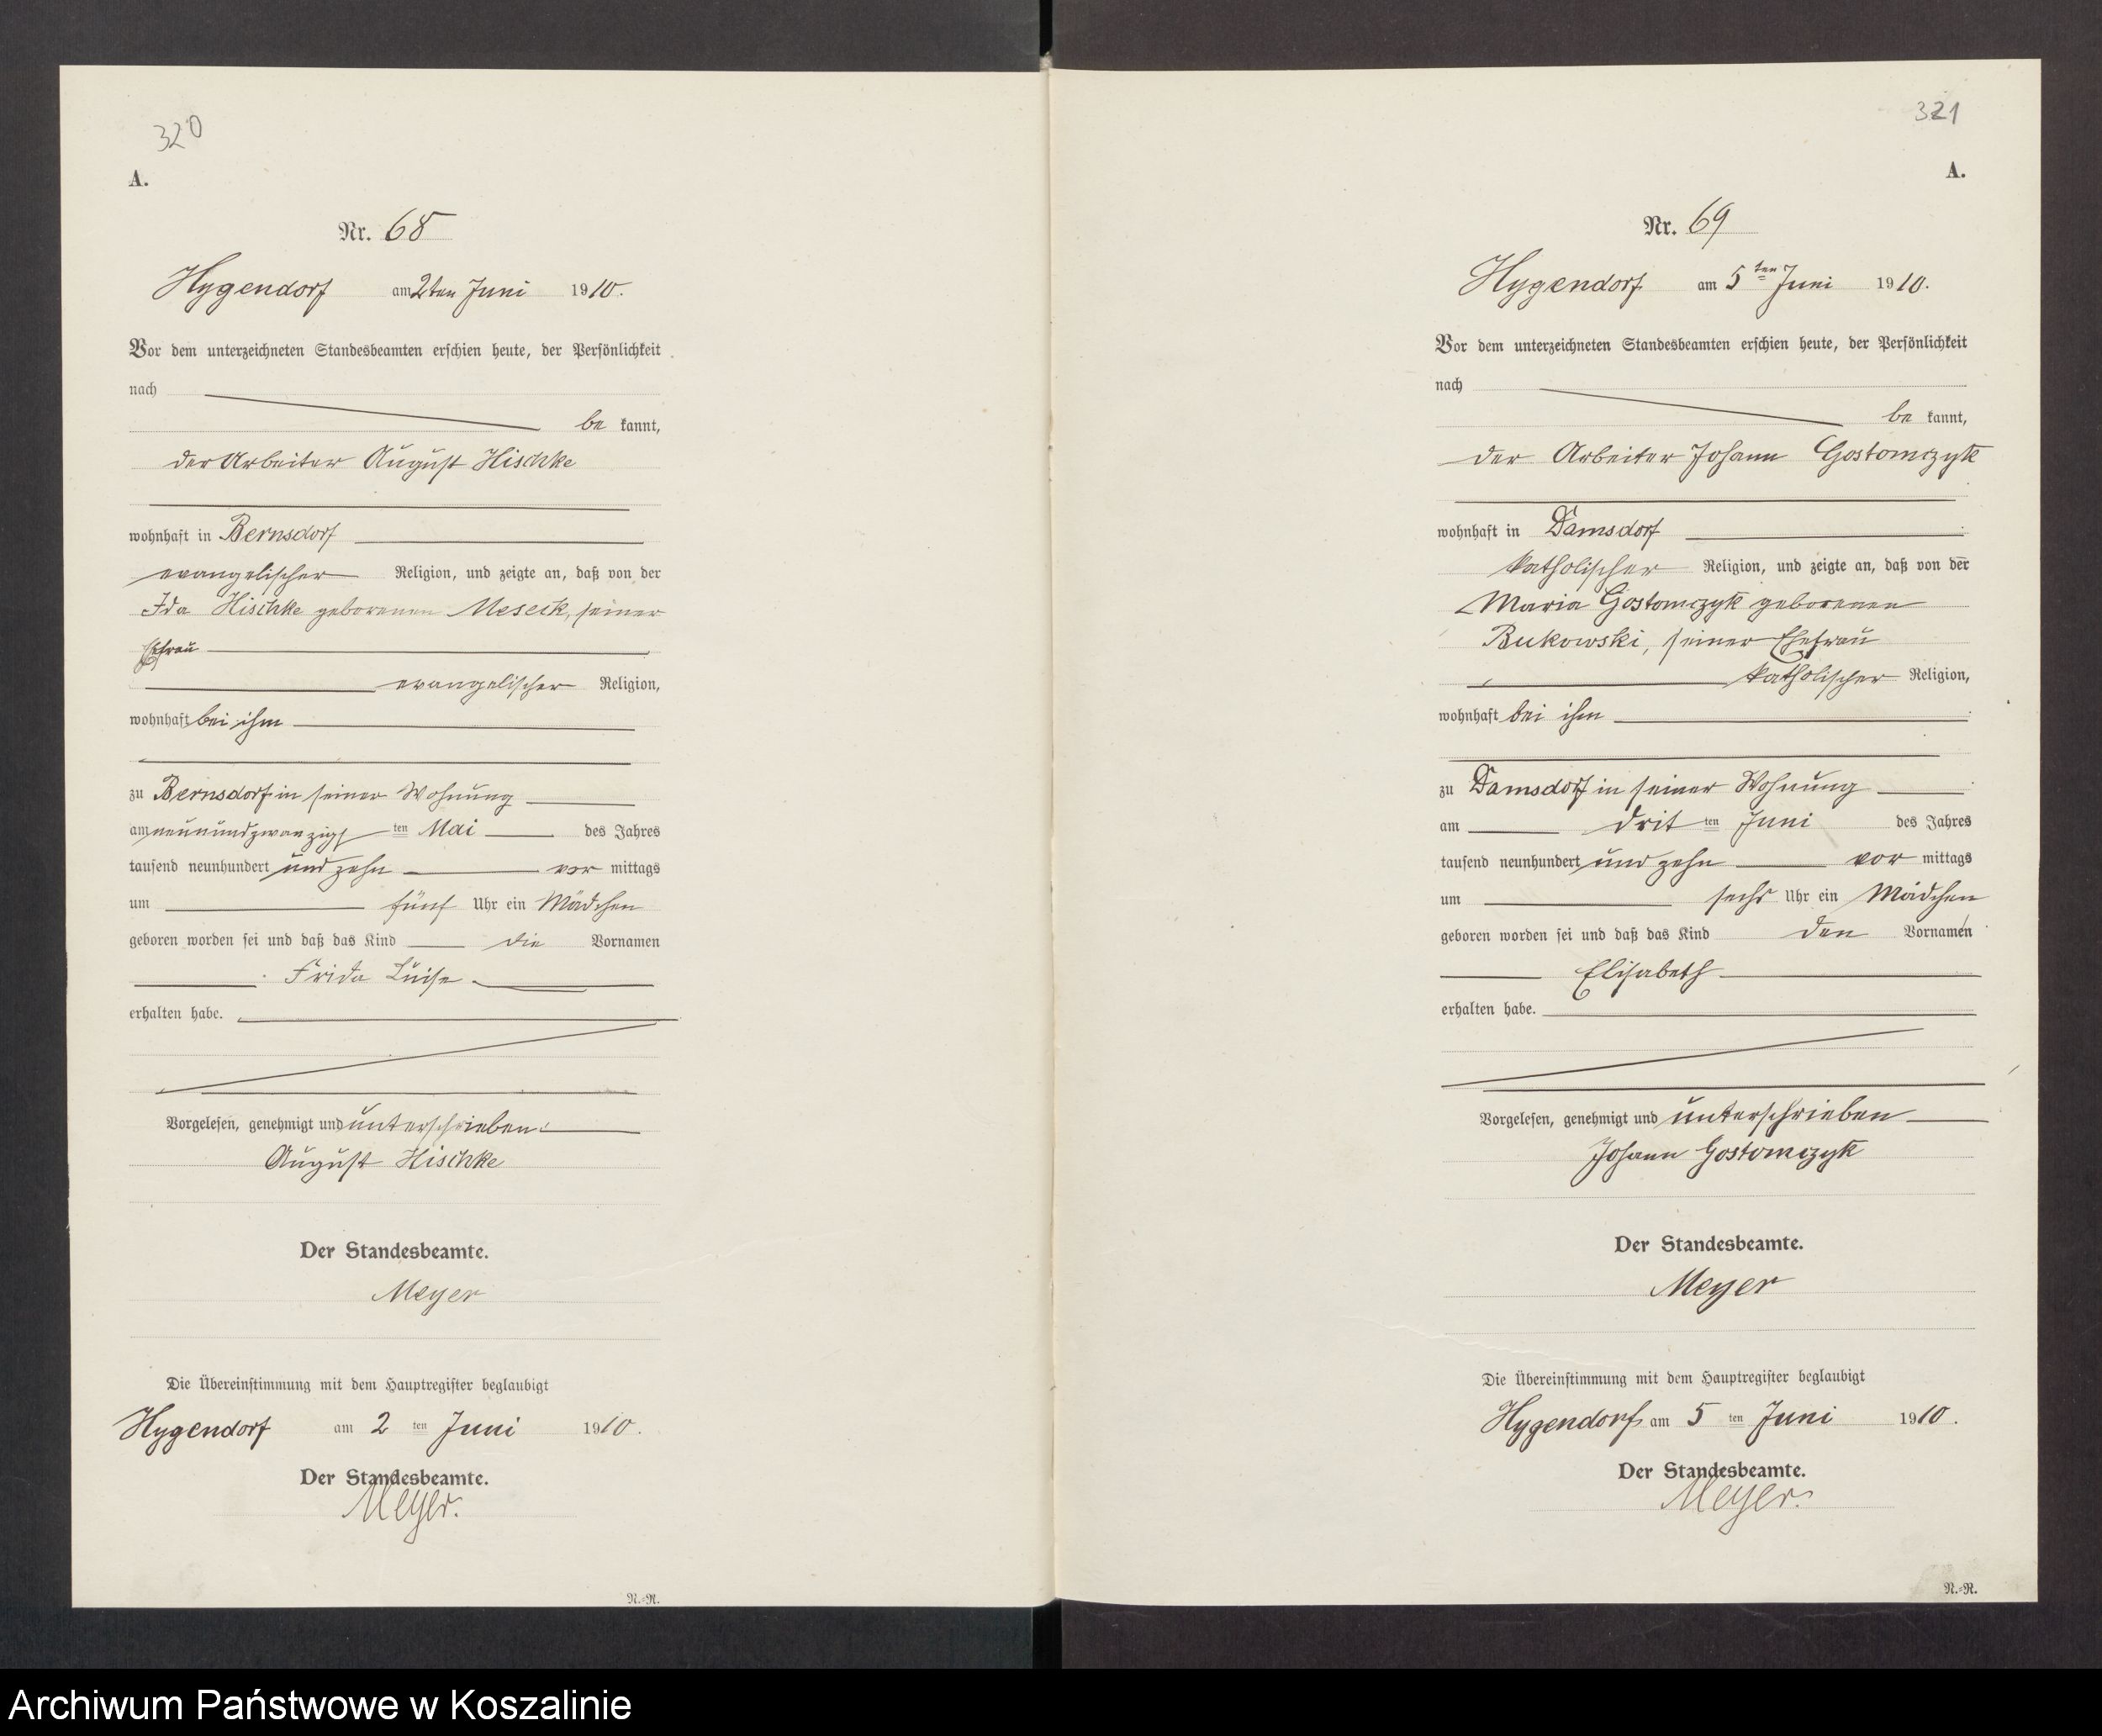 320
A.
Nr. 68
Hygendorf am 2ten Juni 1910.
Vor dem unterzeichneten Standesbeamten erschien heute, der Persönlichkeit
nach
be kannt,
der Arbeiter August Hischke
wohnhaft in Bernsdorf
evangelischer Religion, und zeigte an, daß von der
Ida Hischke geborenen Meseck, seiner
Ehefrau
evangelischer Religion,
wohnhaft bei ihm
zu Bernsdorf in seiner Wohnung
am neunundzwanzigsten Mai des Jahres
tausend neunhundert und zehn vor mittags
um fünf Uhr ein Mädchen
geboren worden sei und daß das Kind die Vornamen
Frida Luise
erhalten habe.
Vorgelesen, genehmigt und unterschrieben.
August Hischke
Der Standesbeamte.
Meyer
Die Übereinstimmung mit dem Hauptregister beglaubigt
Hygendorf am 2 ten Juni 1910.
Der Standesbeamte.
Meyer.
N.-R.
321
A.
Nr. 69
Hygendorf am 5 ten Juni 1910.
Vor dem unterzeichneten Standesbeamten erschien heute, der Persönlichkeit
nach
be kannt,
der Arbeiter Johann Gostomczyk
wohnhaft in Damsdorf
katholischer Religion, und zeigte an, daß von der
Maria Gostomczyk geborenen
Bukowski, seiner Ehefrau
katholischer Religion,
wohnhaft bei ihm
zu Damsdorf in seiner Wohnung
am drit ten Juni des Jahres
tausend neunhundert und zehn vor mittags
um sechs Uhr ein Mädchen
geboren worden sei und daß das Kind den Vornamen
Elisabeth
erhalten habe.
Vorgelesen, genehmigt und unterschrieben
Johann Gostomczyk
Der Standesbeamte.
Meyer
Die Übereinstimmung mit dem Hauptregister beglaubigt
Hygendorf am 5 ten Juni 1910.
Der Standesbeamte.
Meyer.
N.-R.
Archiwum Państwowe w Koszalinie